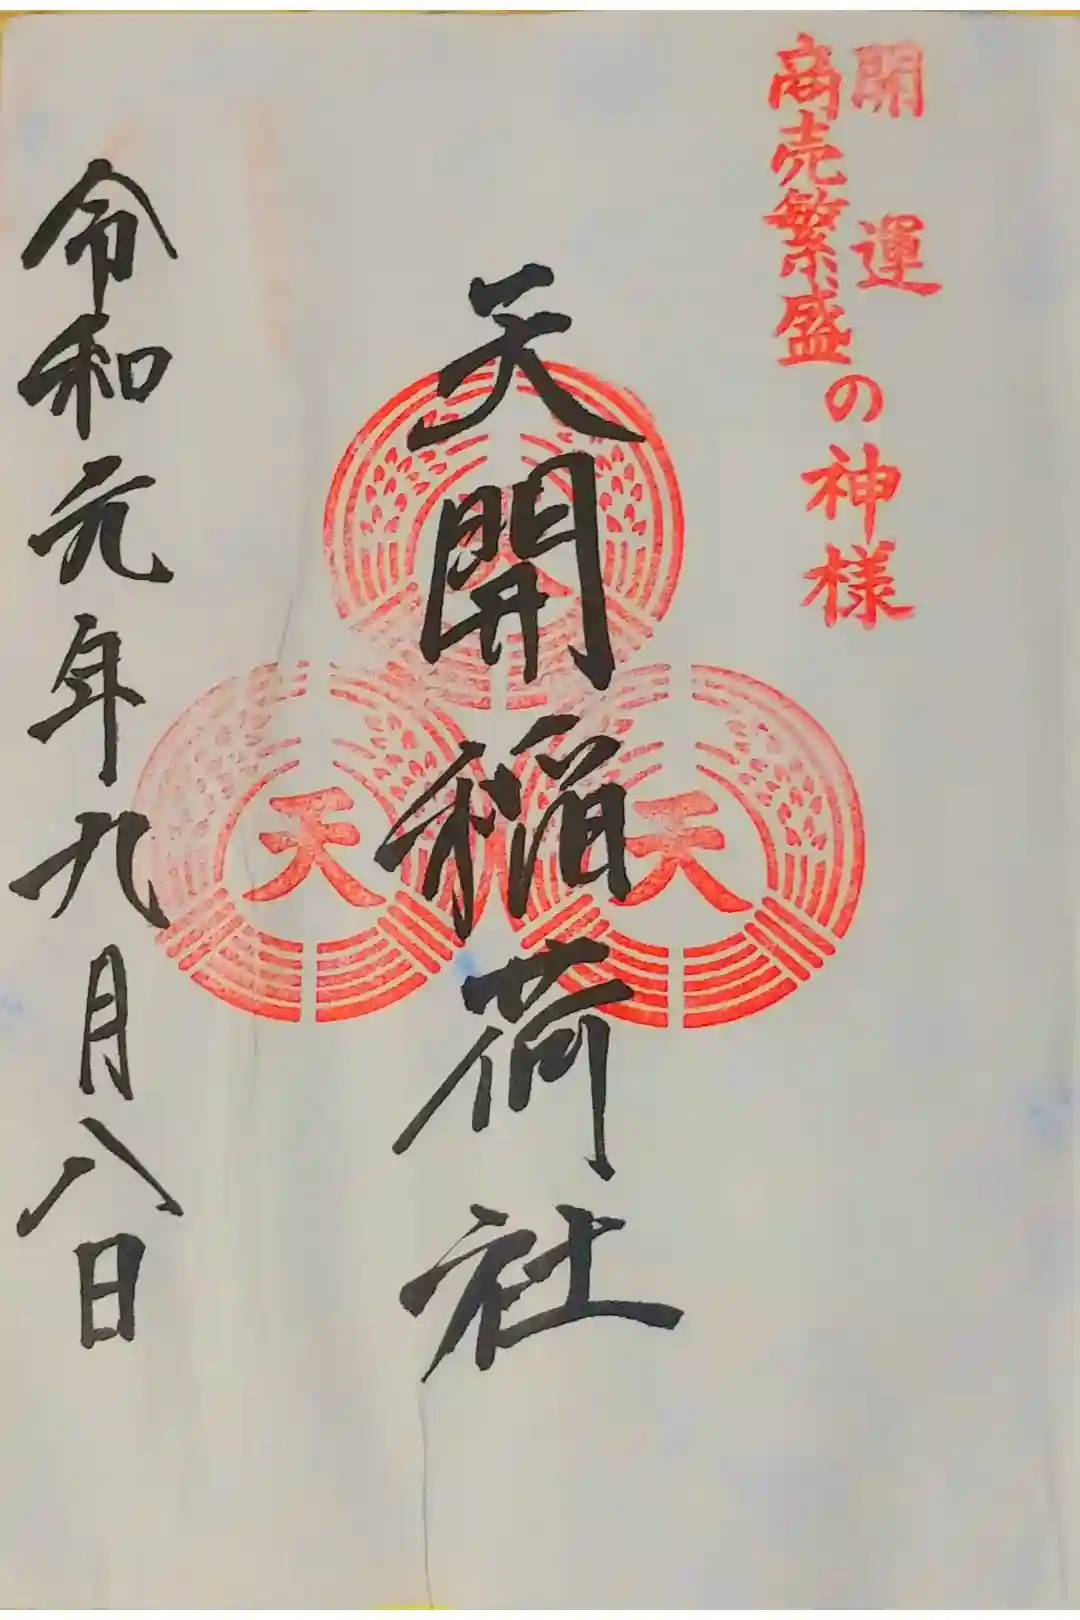 開運
商売繁盛
の神様
天開稲荷社
天
天
令和元年九月八日